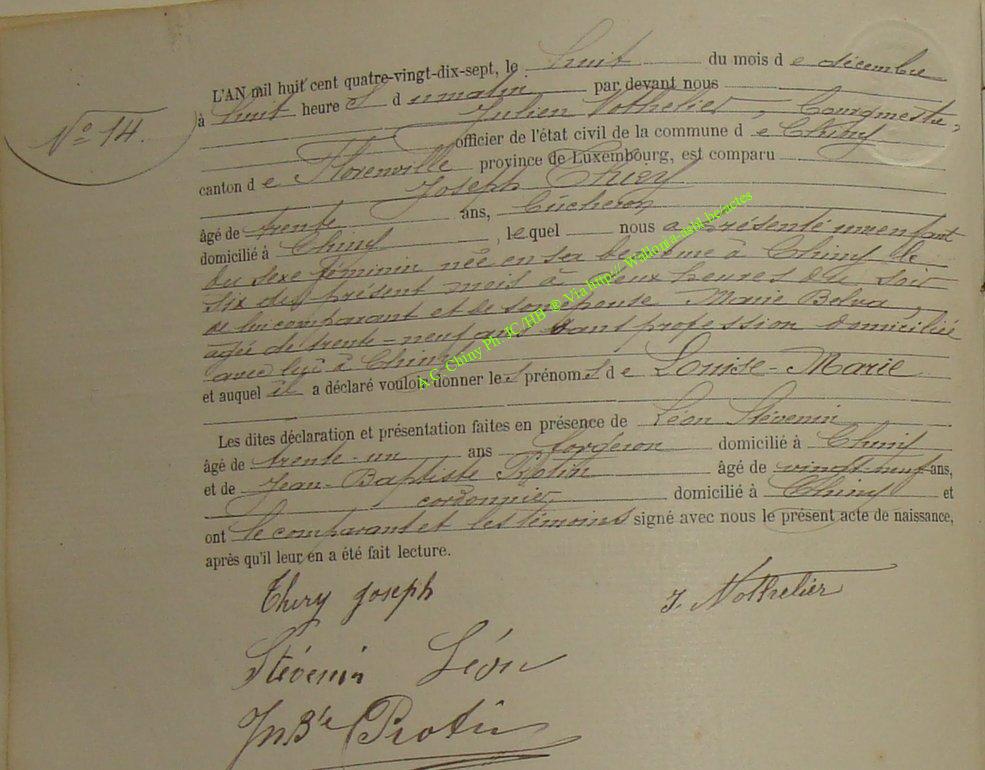 L'AN mil huit cent quatre-vingt-dix-sept, le huit du mois d e décembre
à huit heure s d u matin par devant nous
Nº 14. Julien Nothelier, Bourgmestre,
officier de l'état civil de la commune d e Chiny
canton d e Florenville province de Luxembourg, est comparu
Joseph Thiry
âgé de trente ans, Bûcheron
domicilié à Chiny, lequel nous a présenté un enfant
du sexe féminin née en sa demeure à Chiny le
six du présent mois à deux heures du soir
de lui comparant et de son épouse Marie Belva,
agée de trente-neuf ans sans profession domiciliée
avec lui à Chiny
et auquel il a déclaré vouloir donner le s prénom s d e Louise-Marie
Les dites déclaration et présentation faites en présence de Léon Stévenin
âgé de trente-un ans forgeron domicilié à Chiny
et de Jean-Baptiste Protin âgé de vingt-neuf ans,
cordonnier domicilié à Chiny et
ont le comparant et les témoins signé avec nous le présent acte de naissance,
après qu'il leur en a été fait lecture.
Thiry Joseph J. Nothelier
Stévenin Léon
Jn Bte Protin
A.G. Chiny Ph. JC/HB ® Via http:// Wallonia-asbl-be/actes